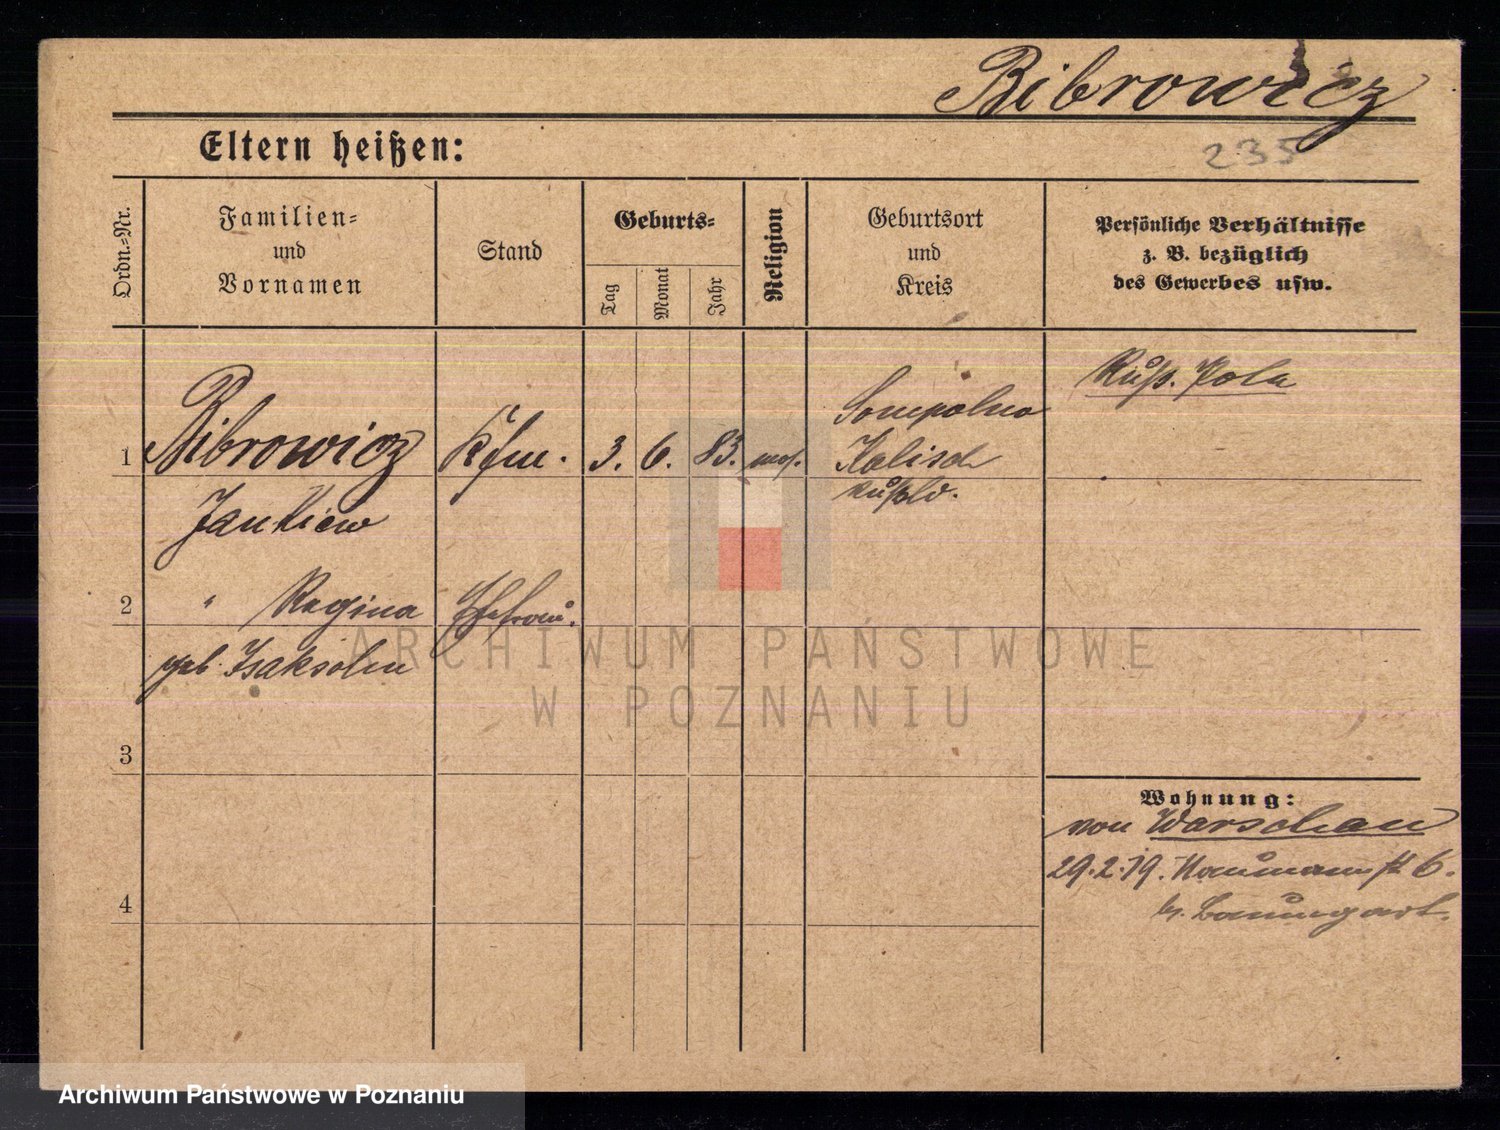 Bibrowicz
235
Eltern heißen:
Ordn.-Nr.
Familien-
und
Vornamen
Stand
Geburts-
Tag
Monat
Jahr
Religion
Geburtsort
und
Kreis
Persönliche Verhältnisse
z. B. bezüglich
des Gewerbes usw.
1
Bibrowicz
Kfm.
3.
6.
83.
mos.
Sompolno
Kalisch
Rußld.
Russ. Pole
Jankiew
2
" Regina
Ehefrau.
geb. Isaksohn
3
4
Wohnung:
von Warschau
29.2.19. Naumannstr 6.
b. Baumgart.
ARCHIWUM PAŃSTWOWE
W POZNANIU
Archiwum Państwowe w Poznaniu